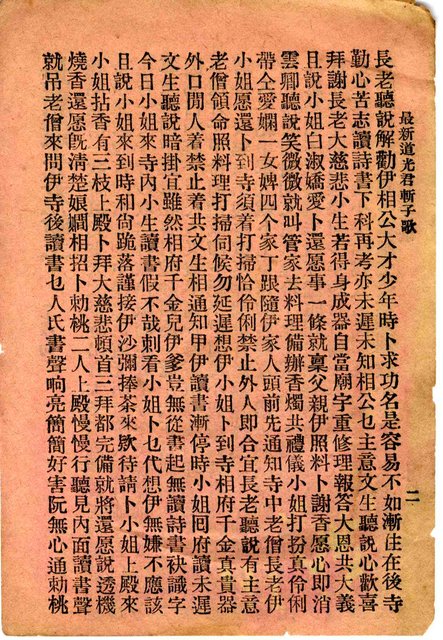 最新道光君斬子歌
二
長老聽說解勸伊相公大才少年時卜求功名是容易不如漸住在後寺
勤心苦志讀詩書下科再考亦未遲未知相公乜主意文生聽說心歡喜
拜謝長老大慈悲小生若得身成器自當廟宇重修理報答大恩共大義
且說小姐白淑嬌愛卜還愿事一條就稟父親伊照料卜謝香愿心即消
雲卿聽說笑微微就叫管家去料理備辦香燭共禮儀小姐打扮真伶俐
帶仝愛嫺一女婢四个家丁跟隨伊家人頭前先通知寺中老僧長老伊
小姐愿還卜到寺須着打掃恰伶俐禁止外人即合宜長老聽說有主意
老僧領命照料理打掃伺候勿延遲想伊小姐卜到寺相府千金真貴器
外口閒人着禁止着共文生相通知甲伊讀書漸停時小姐囘府讀未遲
文生聽說暗掛宜雖然相府千金兒伊爹豈無從書起無讀詩書袂識字
今日小姐來寺內小生讀書假不哉刺看小姐卜乜代想伊無嫌不應該
且說小姐來到時和尙跪落謹接伊沙彌捧茶來欵待請卜小姐上殿來
小姐拈香有三枝上殿卜拜大慈悲頓首三拜都完備就將還愿說透機
燒香還愿旣淸楚娘嫺相招卜勅桃二人上殿慢慢行聽見內面讀書聲
就吊老僧來問伊寺後讀書乜人氏書聲响亮簡簡好害阮無心通勅桃